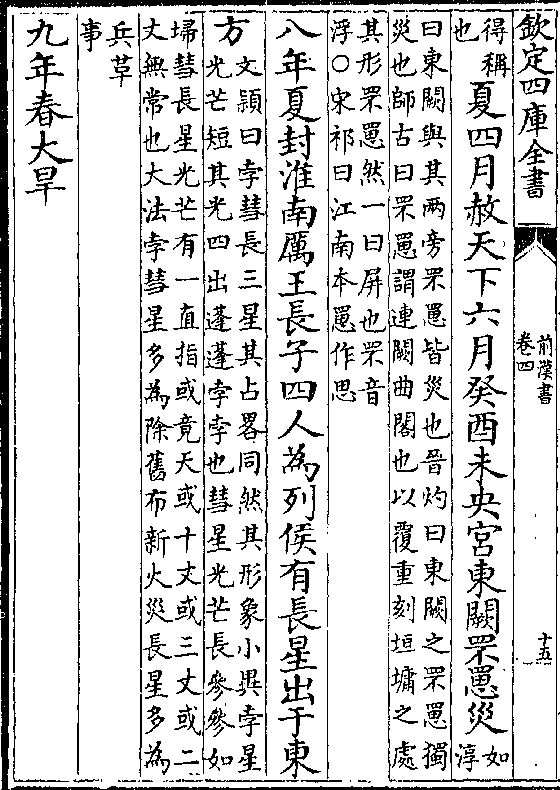 欽定四庫全書
前漢書
卷四
十五
得稱
也
夏四月赦天下六月癸酉未央宮東闕罘罳災
如
淳
曰東闕與其兩旁罘罳皆災也晉灼曰東闕之罘罳獨
災也師古曰罘罳謂連闕曲閣也以覆重刻垣墉之處
其形罘罳然一曰屏也罘音
浮○宋祁曰江南本罳作思
八年夏封淮南厲王長子四人為列侯有長星出于東
方
文穎曰孛彗長三星其占畧同然其形象小異孛星
光芒短其光四出蓬蓬孛孛也彗星光芒長參參如
埽彗長星光芒有一直指或竟天或十丈或三丈或二
丈無常也大法孛彗星多為除舊布新火災長星多為
兵草
事
九年春大旱